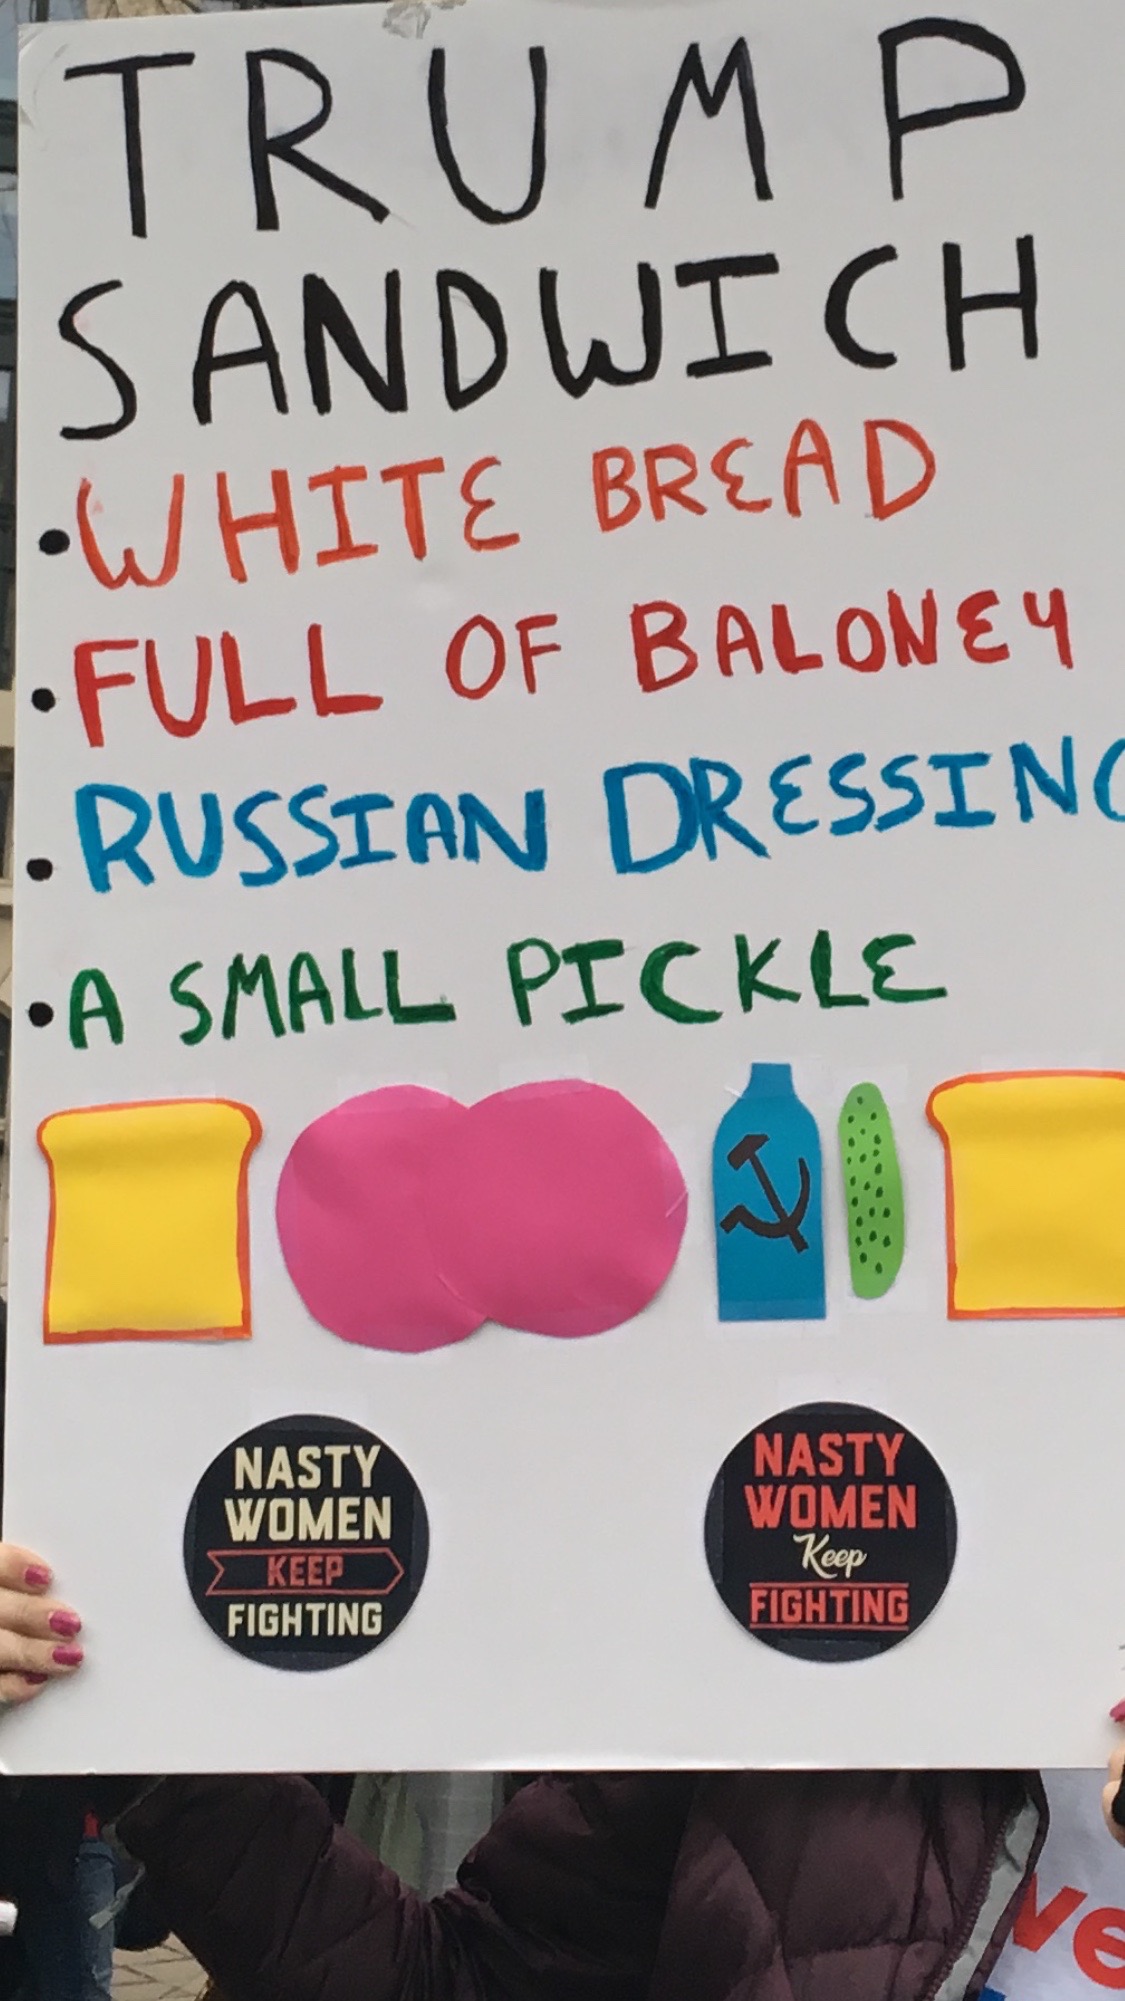 TRUMP
SANDWICH
• WHITE BREAD
• FULL OF BALONEY
• RUSSIAN DRESSING
• A SMALL PICKLE
NASTY
WOMEN
KEEP
FIGHTING
NASTY
WOMEN
Keep
FIGHTING